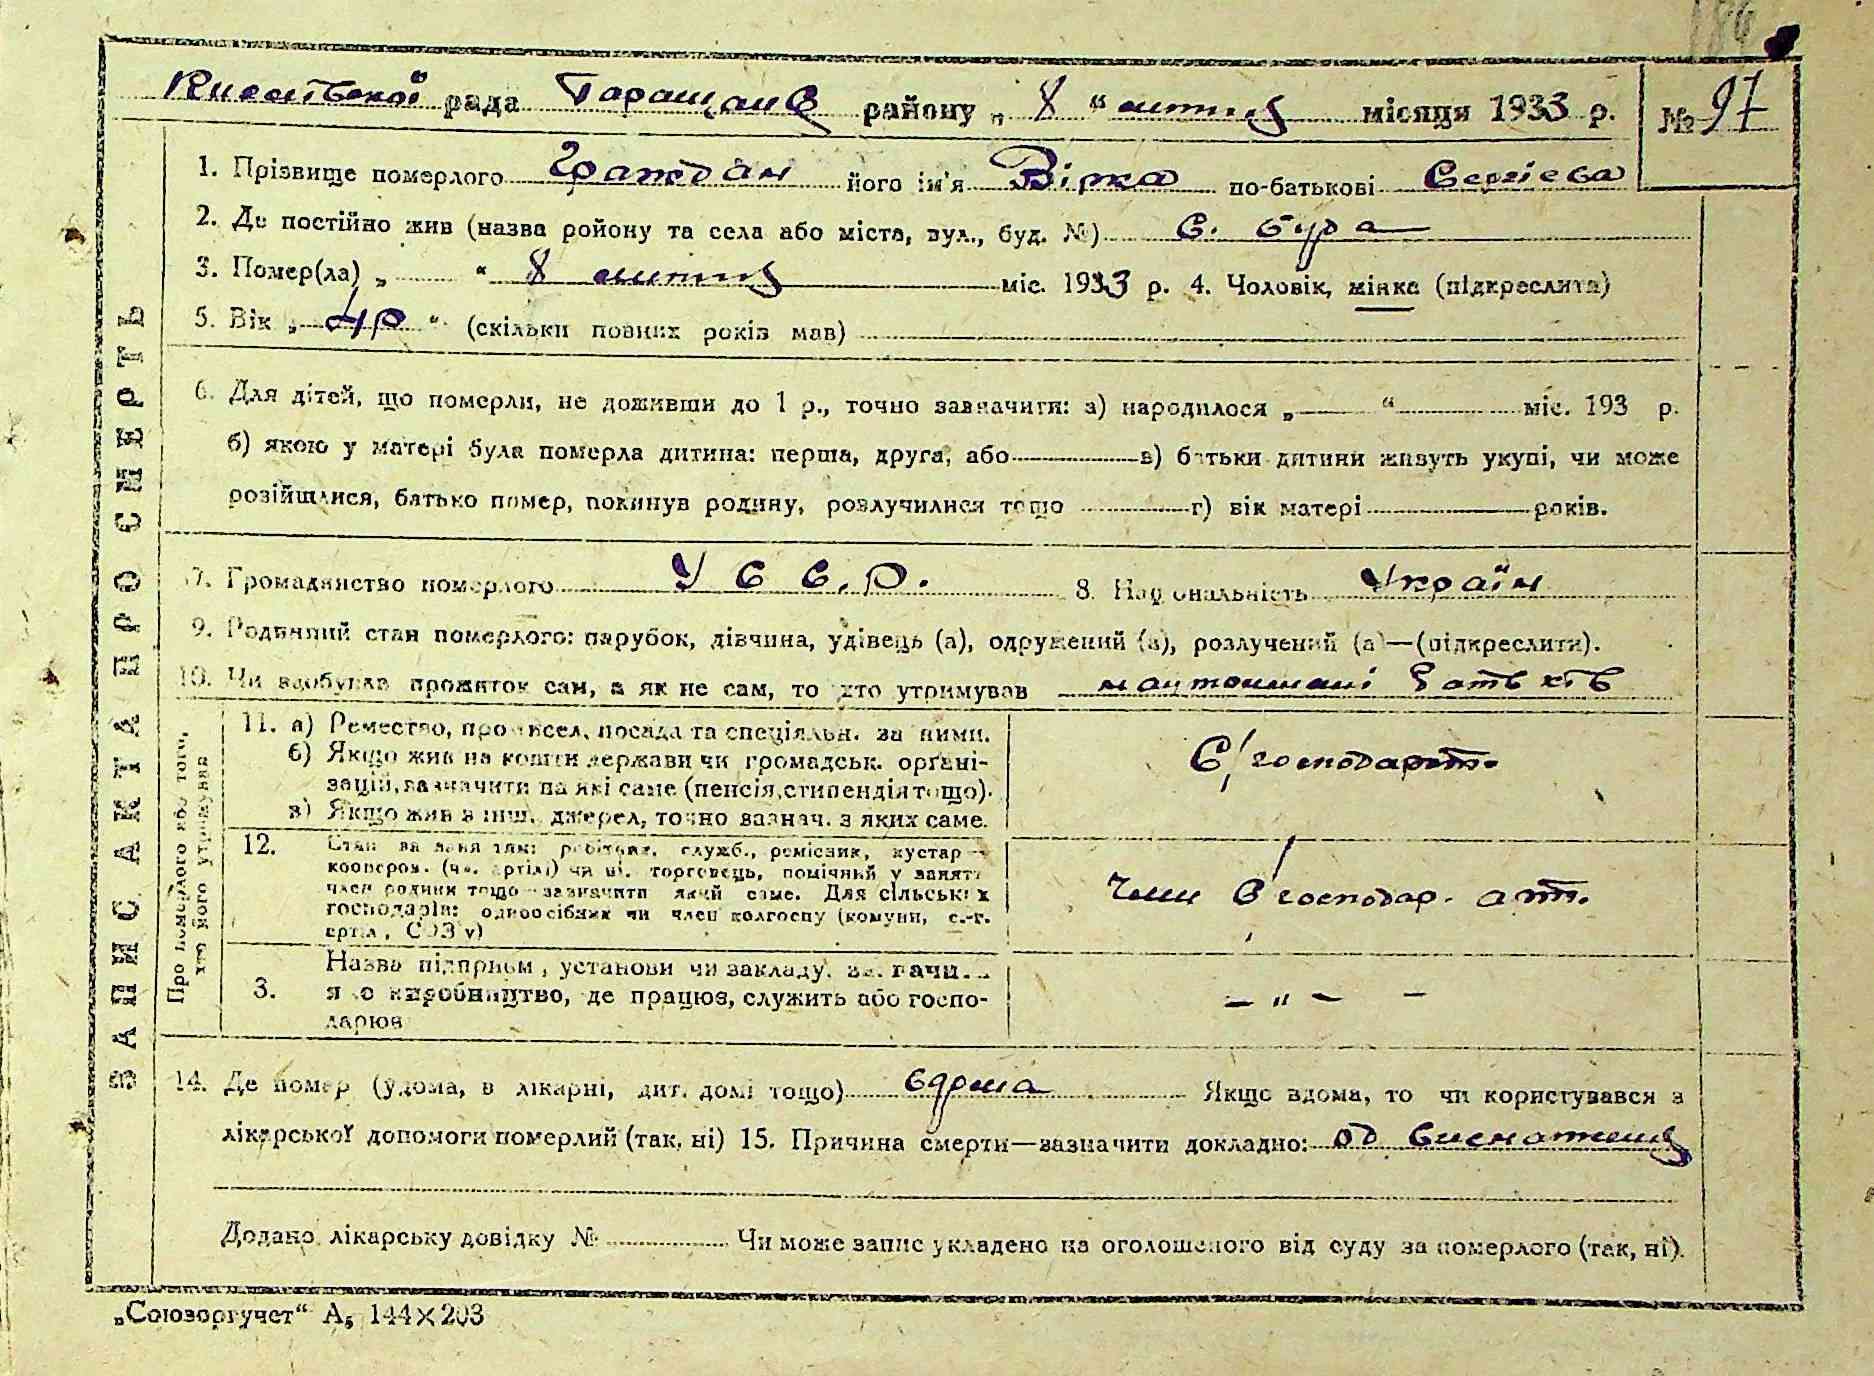 186
рада Таращанс району „ 8 “ липня місяця 1933 р. № 97
1. Прізвище померлого Граждан його ім'я Вірка по-батькові Сергієва
2. Де постійно жив (назва ройону та села або міста, вул., буд. №) с. бура
3. Помер(ла) „ “ 8 липня міс. 1933 р. 4. Чоловік, жінка (підкреслити)
5. Вік „ 4р “ (скільки повних років мав)
6. Для дітей, що померли, не доживши до 1 р., точно зазначити: а) народилося „ “ міс. 193 р.
б) якою у матері була померла дитина: перша, друга, або в) батьки дитини живуть укупі, чи може
розійшлися, батько помер, покинув родину, розлучилися тощо г) вік матері років.
7. Громадянство померлого У С С. Р. 8. Національність Україн
9. Родинний стан померлого: парубок, дівчина, удівець (а), одружений (а), розлучений (а)—(підкреслити).
10. Чи здобував прожиток сам, а як не сам, то хто утримував на утримані батьків
ЗАПИС АКТА ПРО СМЕРТЬ
Про померлого або того, хто його утримував
11. а) Ремество, промисел, посада та спеціяльн. за ними.
б) Якщо жив на кошти держави чи громадськ. орґані-
зацій, зазначити на які саме (пенсія, стипендія тощо).
в) Якщо жив з інш. джерел, точно вазнач. з яких саме.
С/господарст.
12. Стан за заняттям: робітник, служб., ремісник, кустар
кооперов. (чл. артілі) чи ні, торговець, помічний у занятті
член родини тощо зазначити який саме. Для сільських
господарів: одноосібник чи член колгоспу (комуни, с.-г.
артіл., СОЗ'у)
Член С/господар. арт.
3. Назва підприєм., установи чи закладу,
яко виробництво, де працює, служить або госпо-
дарює
– „ – –
14. Де помер (удома, в лікарні, дит. домі тощо) вдома Якщо вдома, то чи користувався з
лікарської допомоги померлий (так, ні) 15. Причина смерти—зазначити докладно: од виснаження
Додано лікарську довідку № Чи може запис укладено на оголошеного від суду за померлого (так, ні).
„Союзоргучет“ А₅ 144×203